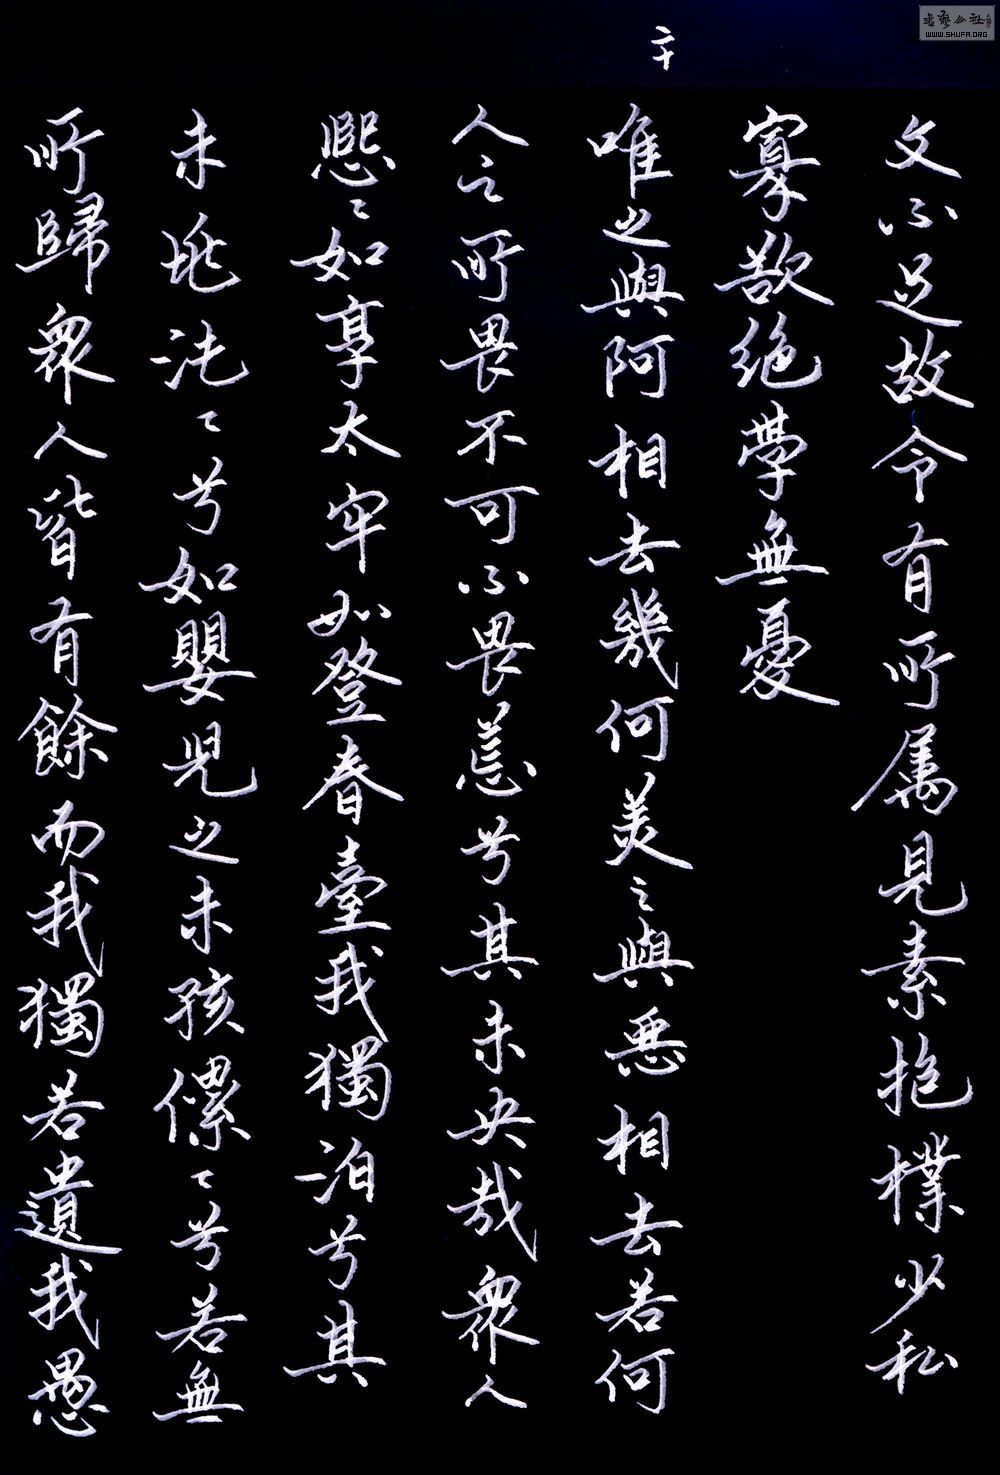 文不足故令有所属見素抱樸少私
寡欲絶學無憂
二十
唯之與阿相去幾何美之與悪相去若何
人之所畏不可不畏荒兮其未央哉衆人
熙〻如享太牢如登春臺我獨泊兮其
未兆沌〻兮如嬰兒之未孩傫〻兮若無
所歸衆人皆有餘而我獨若遺我愚
書藝公社
WWW.SHUFA.ORG